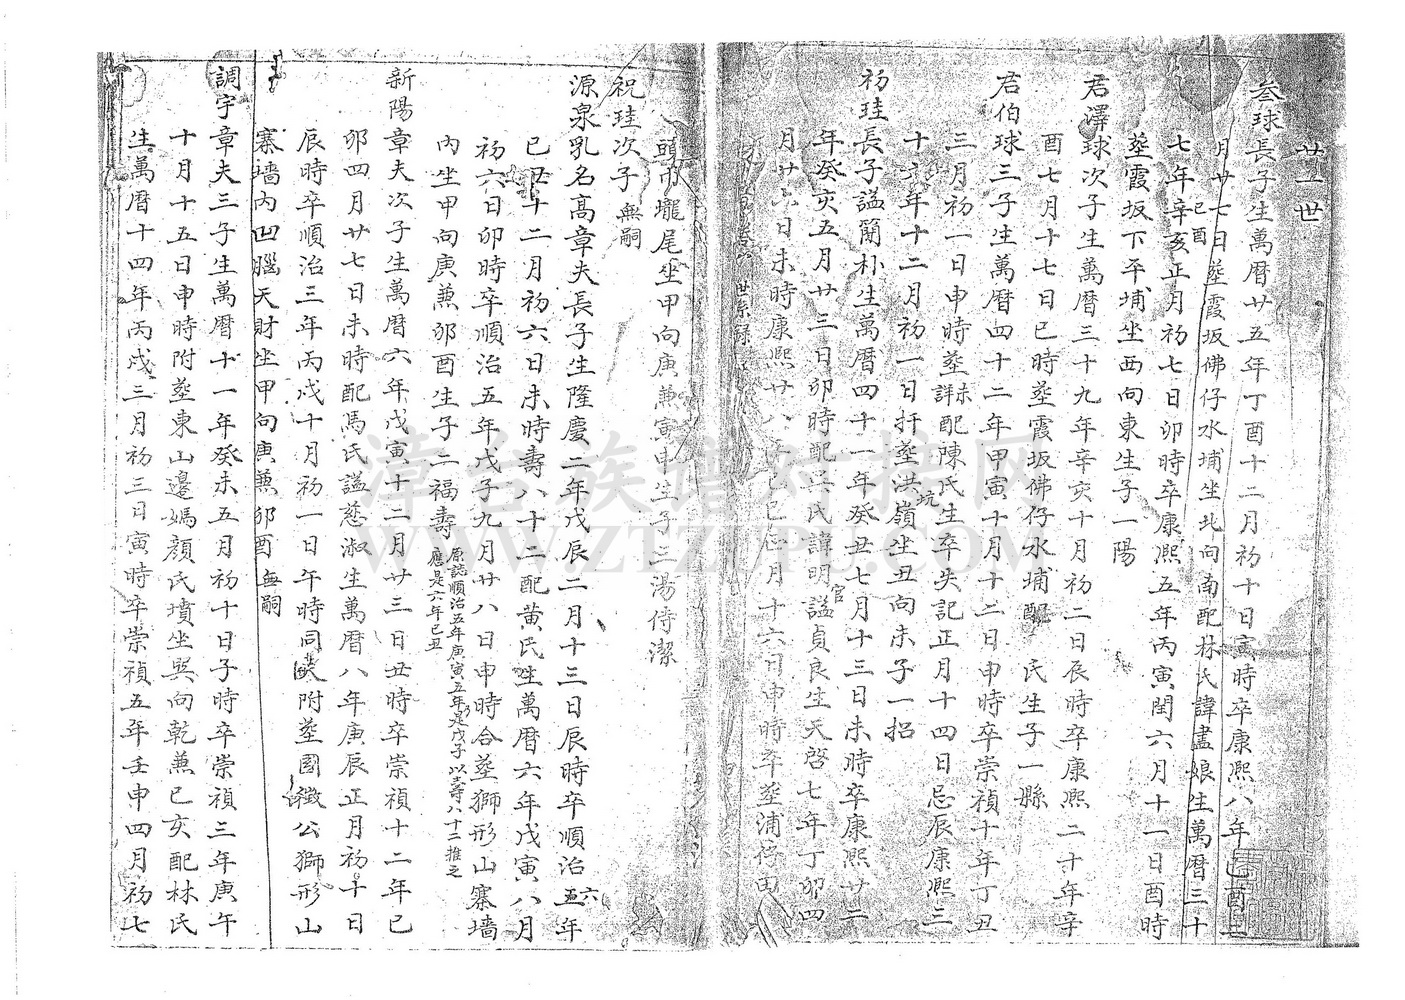 廿一世
叁球長子生萬曆廿五年丁酉十二月初十日寅時卒康熙八年己酉二
月廿七日塟霞坂佛仔水埔坐北向南配林氏諱盡娘生萬曆三十
己酉
七年辛亥正月初七日卯時卒康熙五年丙寅閏六月十一日酉時
塟霞坂下平埔坐西向東生子一陽
君澤球次子生萬曆三十九年辛亥十月初二日辰時卒康熙二十年辛
酉七月十七日巳時塟霞坂佛仔水埔配 氏生子一縣
君伯球三子生萬曆四十二年甲寅十月十二日申時卒崇禎十年丁丑
三月初一日申時塟未詳配陳氏生卒失記正月十四日忌辰康熙三
十六年十二月初一日扦塟洪坑嶺坐丑向未子一招
初珪長子謚蘭朴生萬曆四十一年癸丑七月十三日未時卒康熙廿二
年癸亥五月廿三日卯時配吳氏諱明官謚貞良生天啓七年丁卯四
月廿六日未時康熙廿八年己巳正月十六日申時卒塟浦仔田
頭巾壠尾坐甲向庚兼寅申生子三湯侍潔
祝珪次子無嗣
源泉乳名高章夫長子生隆慶二年戊辰二月十三日辰時卒順治五六年
已丑十二月初六日未時壽八十二配黄氏生萬曆六年戊寅八月
初六日卯時卒順治五年戊子九月廿八日申時合塟獅形山寨墻
內坐甲向庚兼卯酉生子二福壽
原誌順治五年庚寅五年乃是戊子以壽八十二推之
應是六年已丑
新陽章夫次子生萬曆六年戊寅十二月廿三日丑時卒崇禎十二年已
卯四月廿七日未時配馬氏謚慈淑生萬曆八年庚辰正月初十日
辰時卒順治三年丙戌十月初一日午時同夫附塟國徵公獅形山
寨墻內凹腦天財坐甲向庚兼卯酉無嗣
調宇章夫三子生萬曆十一年癸未五月初十日子時卒崇禎三年庚午
十月十五日申時附塟東山邊媽顏氏墳坐巽向乾兼巳亥配林氏
生萬曆十四年丙戌三月初三日寅時卒崇禎五年壬申四月初七
漳台族谱对接网
WWW.ZTZUPU.COM